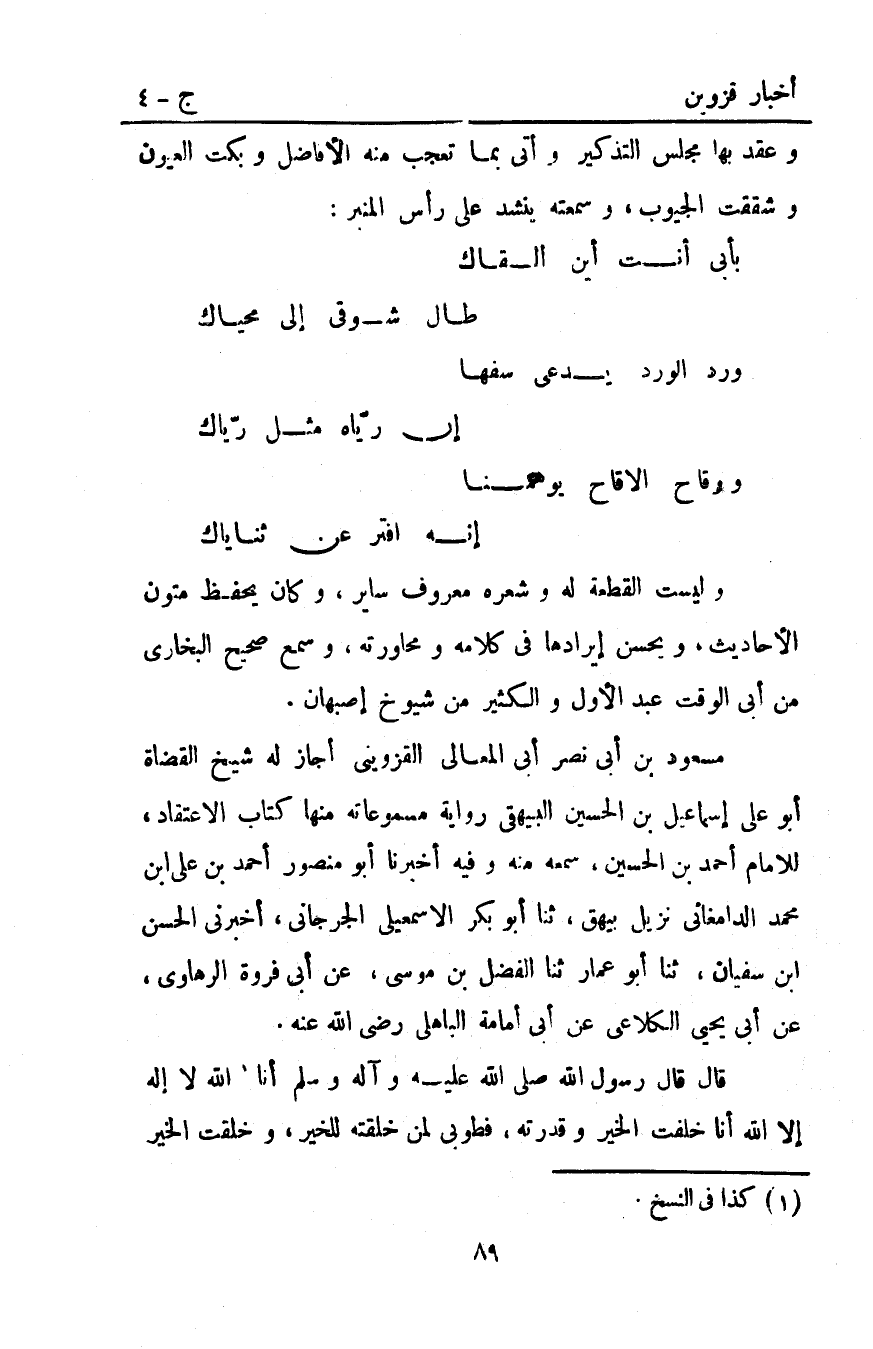 أخبار قزوين ج - ٤
و عقد بها مجلس التذكير و أتى بما تعجب منه الأفاضل و بكت العيون
و شققت الجيوب، و سمعته ينشد على رأس المنبر :
بأبى أنت أين القاك
طال شوقى إلى محياك
ورد الورد يدعى سفها
إن ريّاه مثل ريّاك
و وقاح الاقاح يوهمنا
إنه افتر عن ثناياك
و ليست القطعة له و شعره معروف ساير ، و كان يحفظ متون
الأحاديث، و يحسن إيرادها فى كلامه و محاورته ، و سمع صحيح البخارى
من أبى الوقت عبد الأول و الكثير من شيوخ إصبهان .
مسعود بن أبى نصر أبى المعالى القزوينى أجاز له شيخ القضاة
أبو على إسماعيل بن الحسين البيهقى رواية مسموعاته منها كتاب الاعتقاد،
للامام أحمد بن الحسين ، سمعه منه و فيه أخبرنا أبو منصور أحمد بن على ابن
محمد الدامغانى نزيل بيهق ، ثنا أبو بكر الاسمعيلى الجرجانى ، أخبرنى الحسن
ابن سفيان ، ثنا أبو عمار ثنا الفضل بن موسى ، عن أبى فروة الرهاوى ،
عن أبى يحيى الكلاعى عن أبى أمامة الباهلى رضى الله عنه .
قال قال رسول الله صلى الله عليه و آله و سلم أنا ١ الله لا إله
إلا الله أنا خلقت الخير و قدرته ، فطوبى لمن خلقته للخير ، و خلقت الخير
(١) كذا فى النسخ .
٨٩